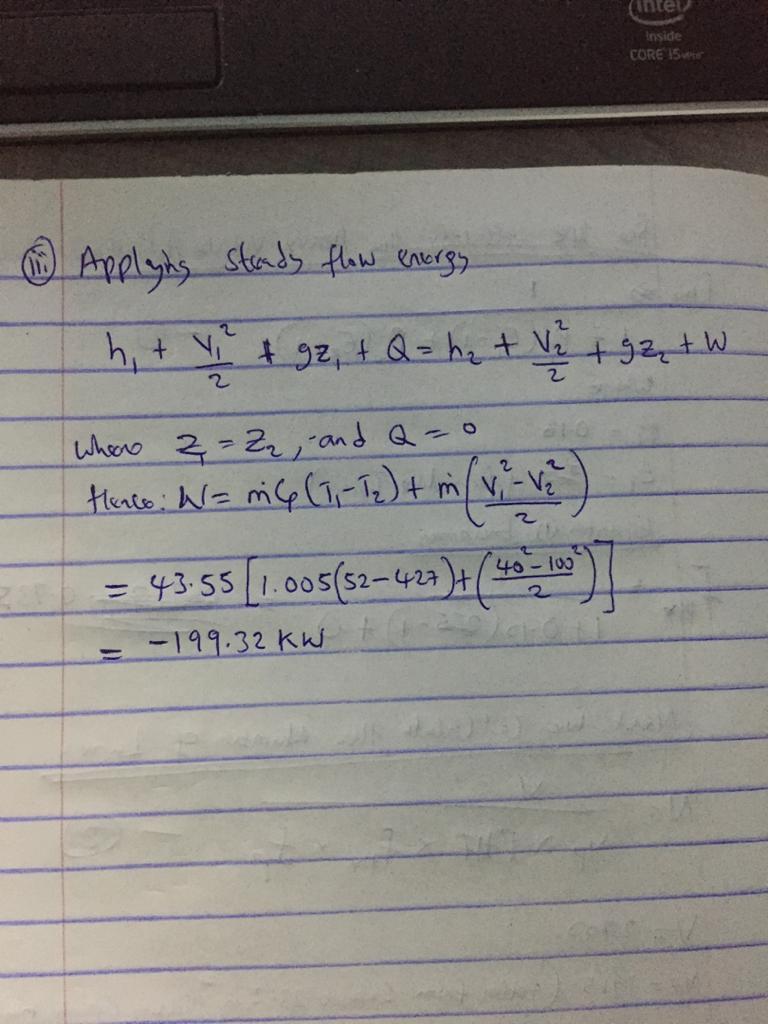 intel
inside
CORE i5 vPro
(iii) Applying steady flow energy
h₁ + V₁²/2 + gz₁ + Q = h₂ + V₂²/2 + gz₂ + W
where Z₁ = Z₂, and Q = 0
Hence: W = ṁCp(T₁-T₂) + ṁ(V₁²-V₂²/2)
= 43.55[1.005(52-427)+(40²-100²/2)]
= -199.32 KW